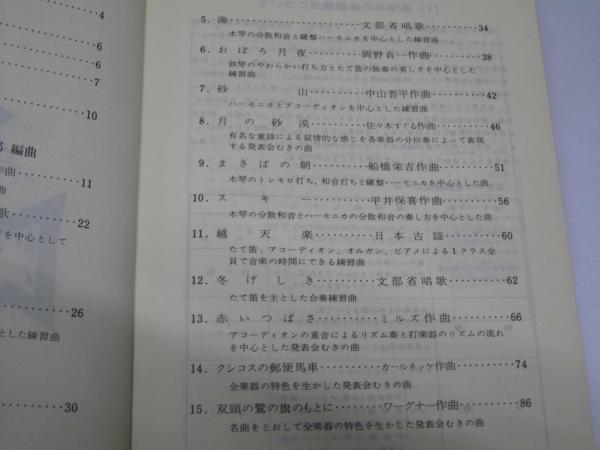 6
7
10
編曲
11
歌
22
を中心として
26
した練習曲
30
5. 海 文部省唱歌 34
木琴の分散和音と鍵盤ハーモニカを中心とした練習曲
6. おぼろ月夜 岡野貞一作曲 38
鉄琴のやわらかい打ち方とたて笛の独奏の美しさを中心とした
練習曲
7. 砂山 中山晋平作曲 42
ハーモニカとアコーディオンを中心とした練習曲
8. 月の砂漠 佐々木すぐる作曲 46
有名な童謡による叙情的な感じを各楽器の分担奏によって表現
する発表会むきの曲
9. まきばの朝 船橋栄吉作曲 51
木琴のトレモロ打ち、和音打ちと鍵盤ハーモニカを中心とした曲
10. スキー 平井保喜作曲 56
木琴の分散和音とハーモニカの分散和音の奏し方を中心とした曲
11. 越天楽 日本古謡 60
たて笛、アコーディオン、オルガン、ピアノによる1クラス全
員で音楽の時間にできる練習曲
12. 冬げしき 文部省唱歌 62
たて笛を主とした合奏練習曲
13. 赤いつばさ ミルズ作曲 66
アコーディオンの重音によるリズム奏と打楽器のリズムの流れ
を中心とした発表会むきの曲
14. クシコスの郵便馬車 カールネッケ作曲 74
全楽器の特色を生かした発表会むきの曲
15. 双頭の鷲の旗のもとに ワーグナー作曲 86
名曲をとおして全楽器の特色を生かした発表会むきの曲